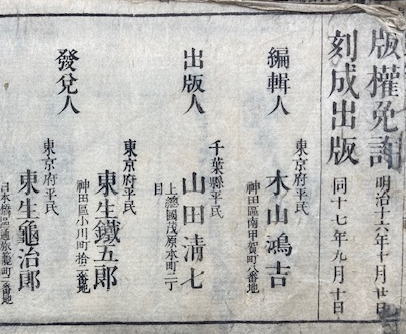 版權免許 明治十六年十月廿日
刻成出版 同十七年九月十日
編輯人
東京府平民
木山鴻吉
神田區南甲賀町八番地
出版人
千葉縣平民
山田清七
上總國茂原本町二丁目
發兌人
東京府平民
東生鐵五郎
神田區小川町拾二番地
東京府平民
東生龜治郎
日本橋區通旅籠町二番地